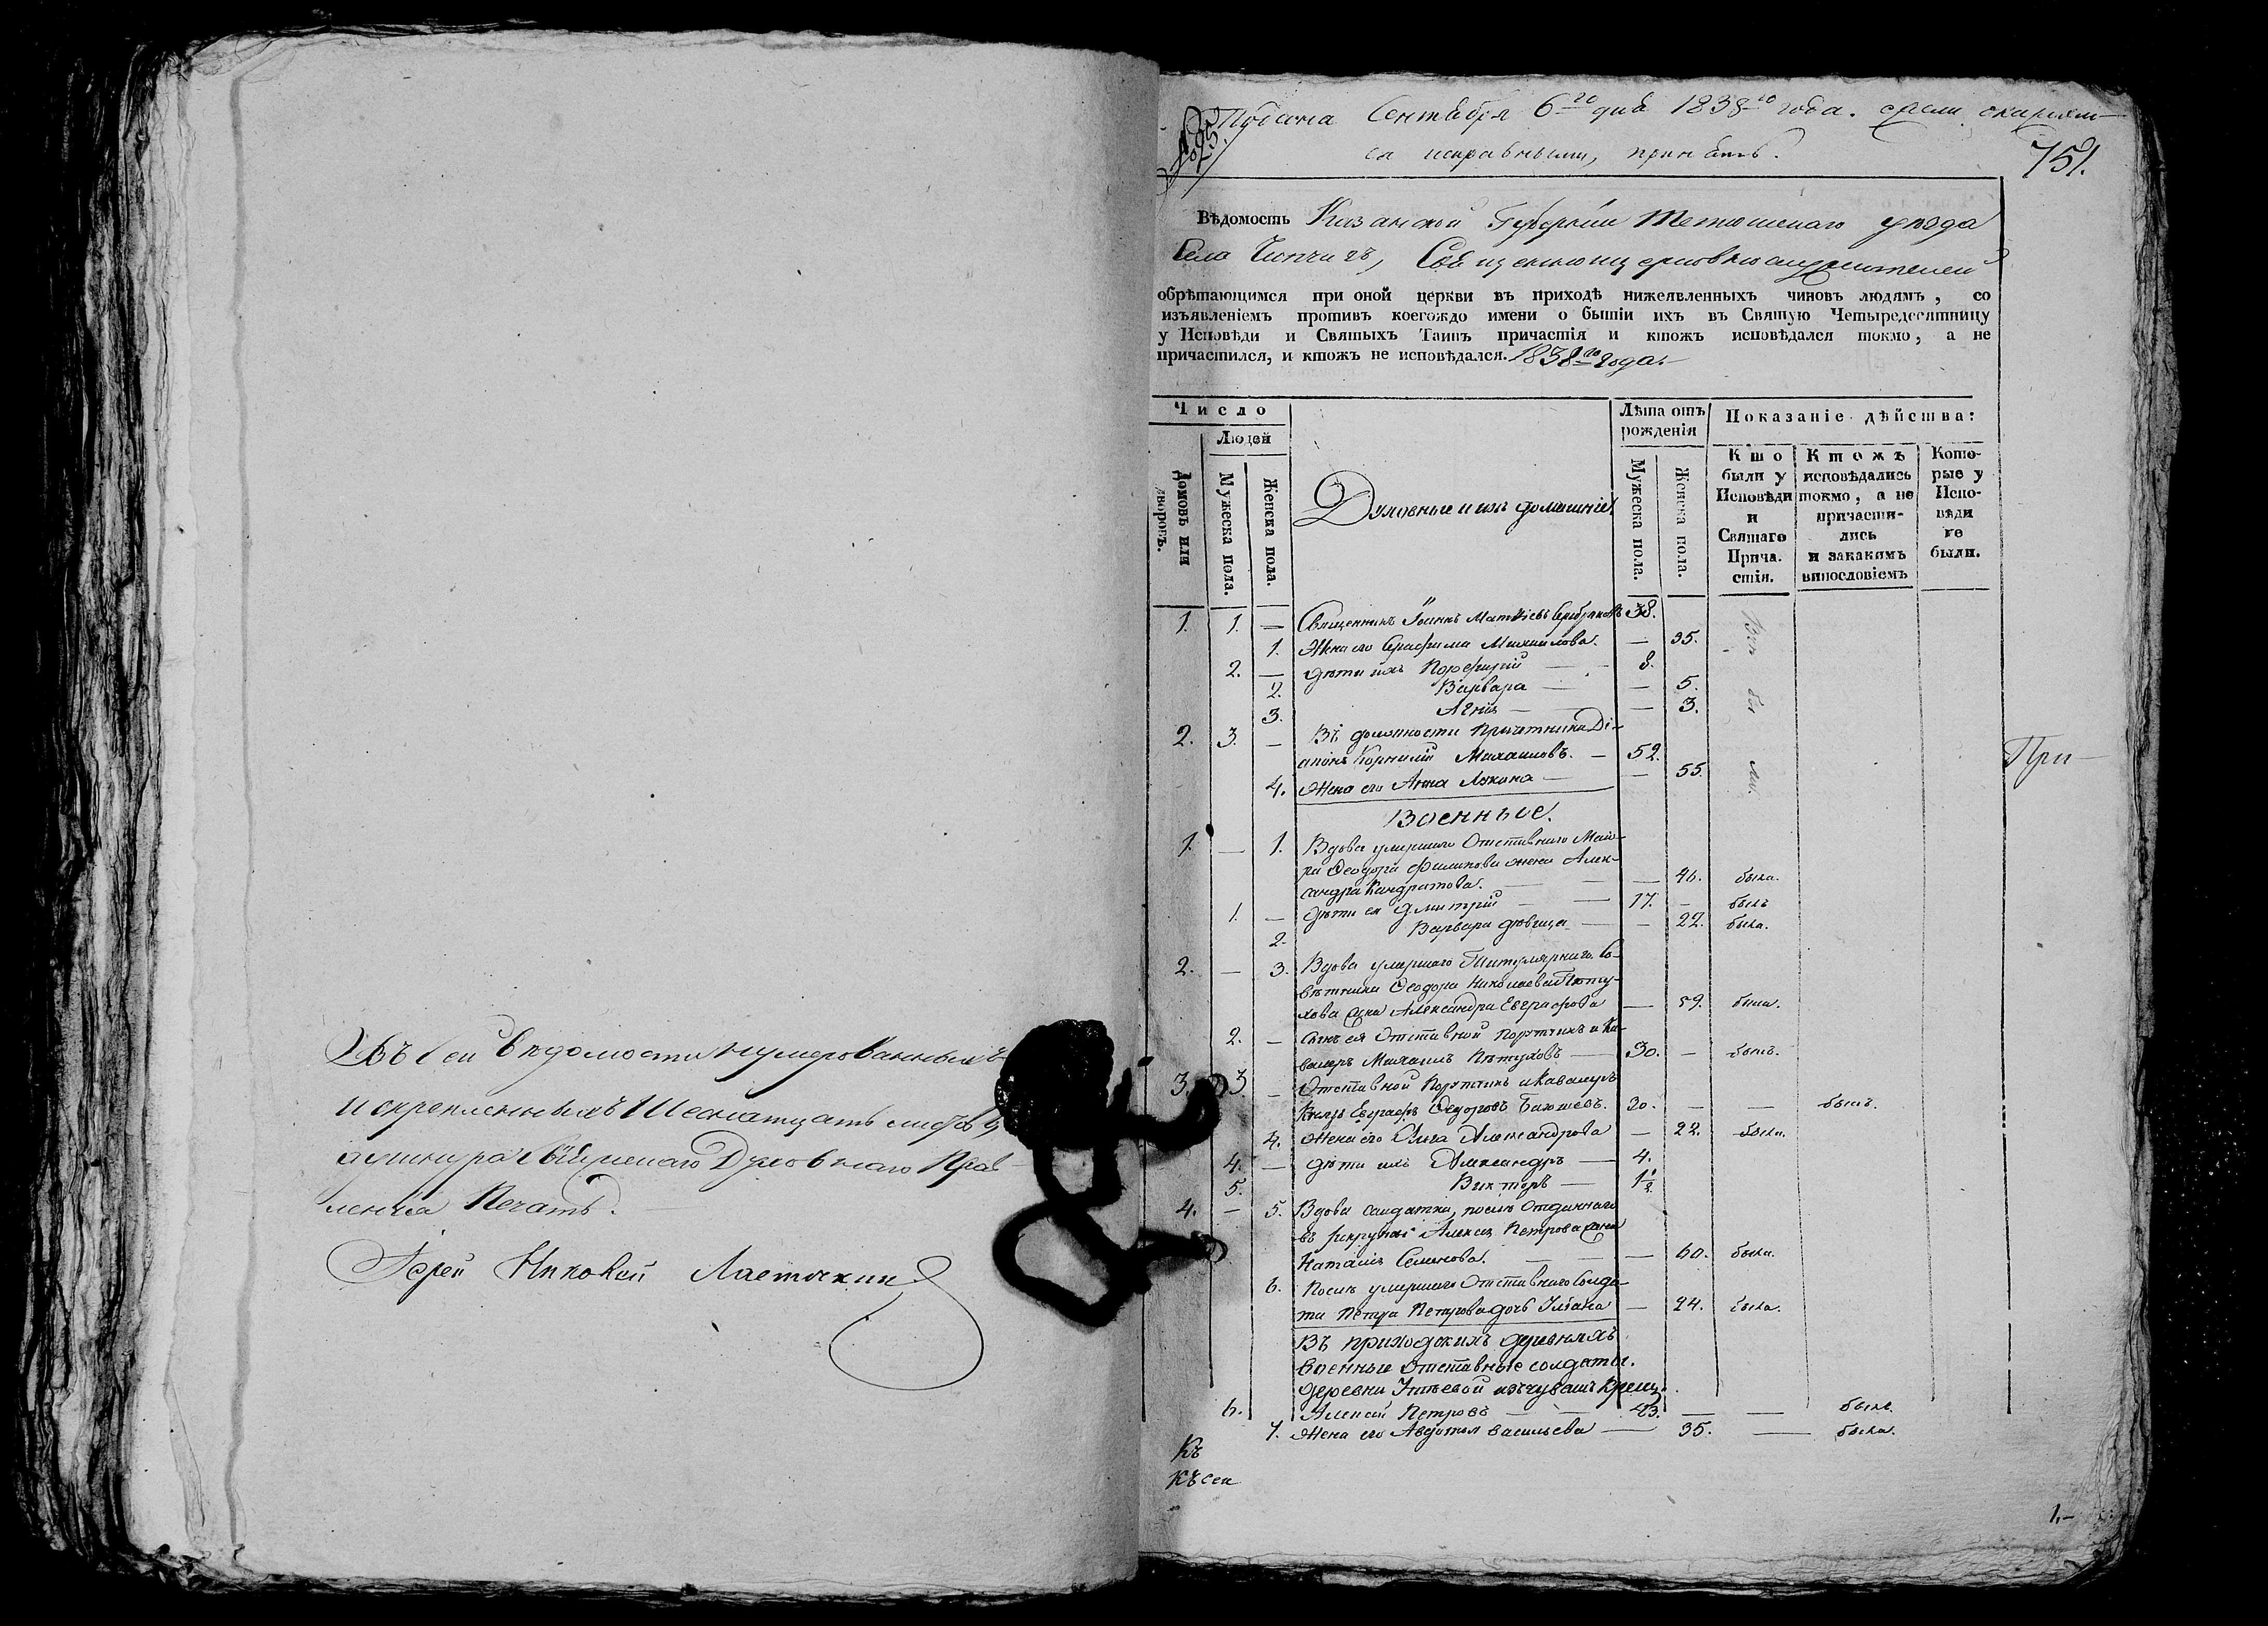 Въ сей вѣдомости нумерованныхъ
и скрепленныхъ Шеснатцать листовъ
Духовнаго Прав-
ленія Печать.
Іерей Николай Ласточкин
№ 25.
Подана Сентября 6го дня 1838го года.
ся исправными, принять.
751.
Вѣдомость Казанской Губерніи Тетюшскаго уѣзда
Села
обрѣтающимся при оной церкви въ приходѣ нижеявленныхъ чиновъ людямъ, со
изъявленіемъ противъ коегождо имени о бытіи ихъ въ Святую Четыредесятницу
у Исповѣди и Святыхъ Таинъ причастія и ктожъ исповѣдался токмо, а не
причастился, и ктожъ не исповѣдался. 1838го года.
Число
Людей
Домовъ или дворовъ.
Мужеска пола.
Женска пола.
Духовные и ихъ домашніе
Лѣта отъ рожденія
Мужеска пола.
Женска пола.
Показаніе дѣйства:
Кто были у Исповѣди и Святаго Прича. стія.
Ктожъ исповѣдались токмо, а не причасти- лись и закакимъ винословіемъ
Кото- рые у Испо- вѣди не были.
1. 1. — Священникъ Іоаннъ Матвіевъ Серебряковъ 38.
1. Жена его Серафима Михайлова. — 35.
2. — дѣти ихъ Порфирій — 8.
2. Варвара — — 5.
3. Агнія — — 3.
Вси бы ли.
2. 3. — Въ должности Причетника Ді-
аконъ Корнилій Михаиловъ. — 52.
4. Жена его Анна Лукина — — 55.
При—
Военные.
1. — 1. Вдова умершаго Отставнаго Маіо-
ра Ѳеодора Филипова жена Алек-
сандра Кандратова. — — 46. была.
1. — дѣти ея Дмитрій — 17. — былъ
2. Варвара дѣвица — — 22. была.
2. — 3. Вдова умершаго Титулярнаго Со-
вѣтника Ѳеодора Николаева Пѣту-
хова жена Александра Евграфова — 59. была.
2. — Сынъ ея Отставной Портчикъ и Ка-
валеръ Михаилъ Пѣтуховъ — 30. — былъ.
3. 3. — Отставной Портчикъ и Кавалеръ
Князь Евграфъ Ѳедоровъ 30. — — былъ.
4. Жена его Ольга Александрова — 22. была.
4. — дѣти ихъ Александръ — 4.
5. Викторъ — 1½
4. — 5. Вдова салдатка, послѣ Отданнаго
въ рекруты Алексѣя Петрова жена
Наталія Семенова. — — 60. была.
6. Послѣ умершаго Отставнаго Солда-
та Петра Петрова дочь Ульяна — 24. была.
Въ приходскихъ деревняхъ
военные отставные солдаты.
деревни изъ чувашъ крещ.
6. Алексей Петровъ — 43. — — былъ.
7. Жена его Авдотья Васильева — 35. — была.
Къ
Къ сей
1.-